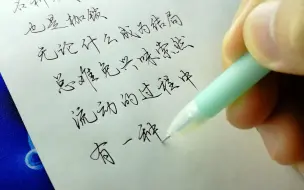 也是枷锁
无论什么成为结局
总难免兴味索然
流动的过程中
有一种